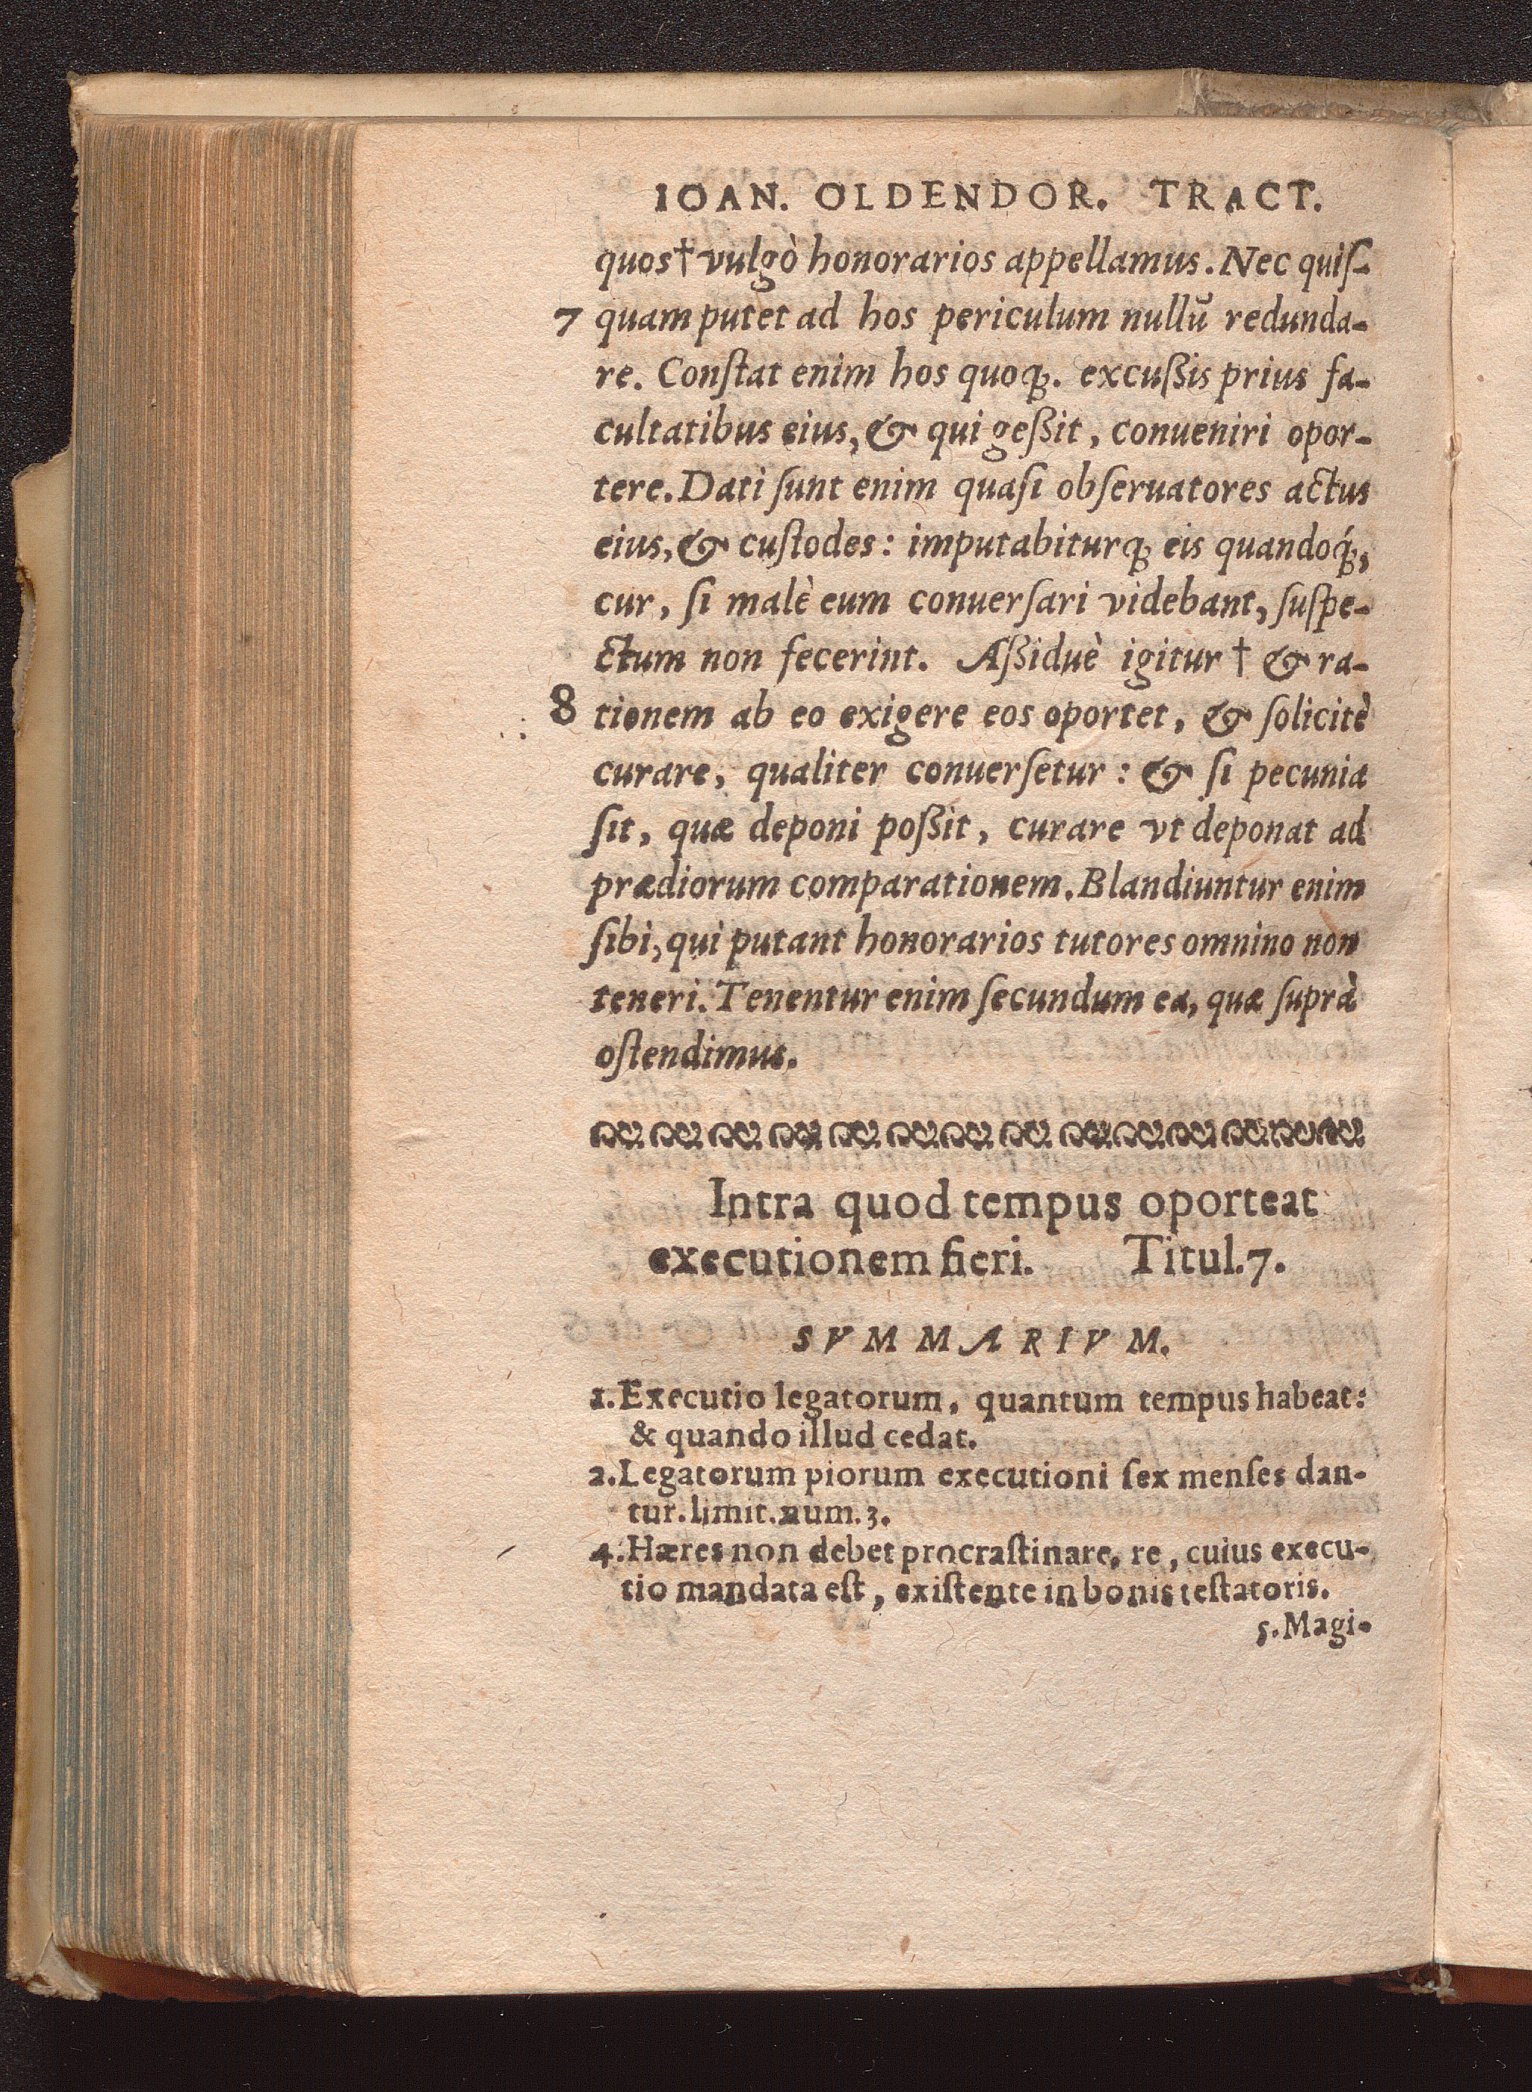 IOAN. OLDENDOR. TRACT.
quos† vulgò honorarios appellamus. Nec quiſ-
7 quam putet ad hos periculum nullū redunda-
re. Conſtat enim hos quoq́;. excuſſis prius fa-
cultatibus eius, & qui geſſit, conueniri opor-
tere. Dati ſunt enim quaſi obſeruatores actus
eius, & cuſtodes: imputabiturq; eis quandoq́;,
cur, ſi malè eum conuerſari videbant, ſuſpe-
ctum non fecerint. Aſſiduè igitur † & ra-
8 tionem ab eo exigere eos oportet, & ſolicitè
curare, qualiter conuerſetur: & ſi pecunia
ſit, quæ deponi poſſit, curare vt deponat ad
prædiorum comparationem. Blandiuntur enim
ſibi, qui putant honorarios tutores omnino non
teneri. Tenentur enim ſecundum ea, quæ ſuprà
oſtendimus.
Intra quod tempus oporteat
executionem fieri. Titul. 7.
SVMMARIVM.
1. Executio legatorum, quantum tempus habeat:
& quando illud cedat.
2. Legatorum piorum executioni ſex menſes dan-
tur. limit. num. 3.
4. Hæres non debet procraſtinare, re, cuius execu-
tio mandata eſt, exiſtente in bonis teſtatoris.
5. Magi-